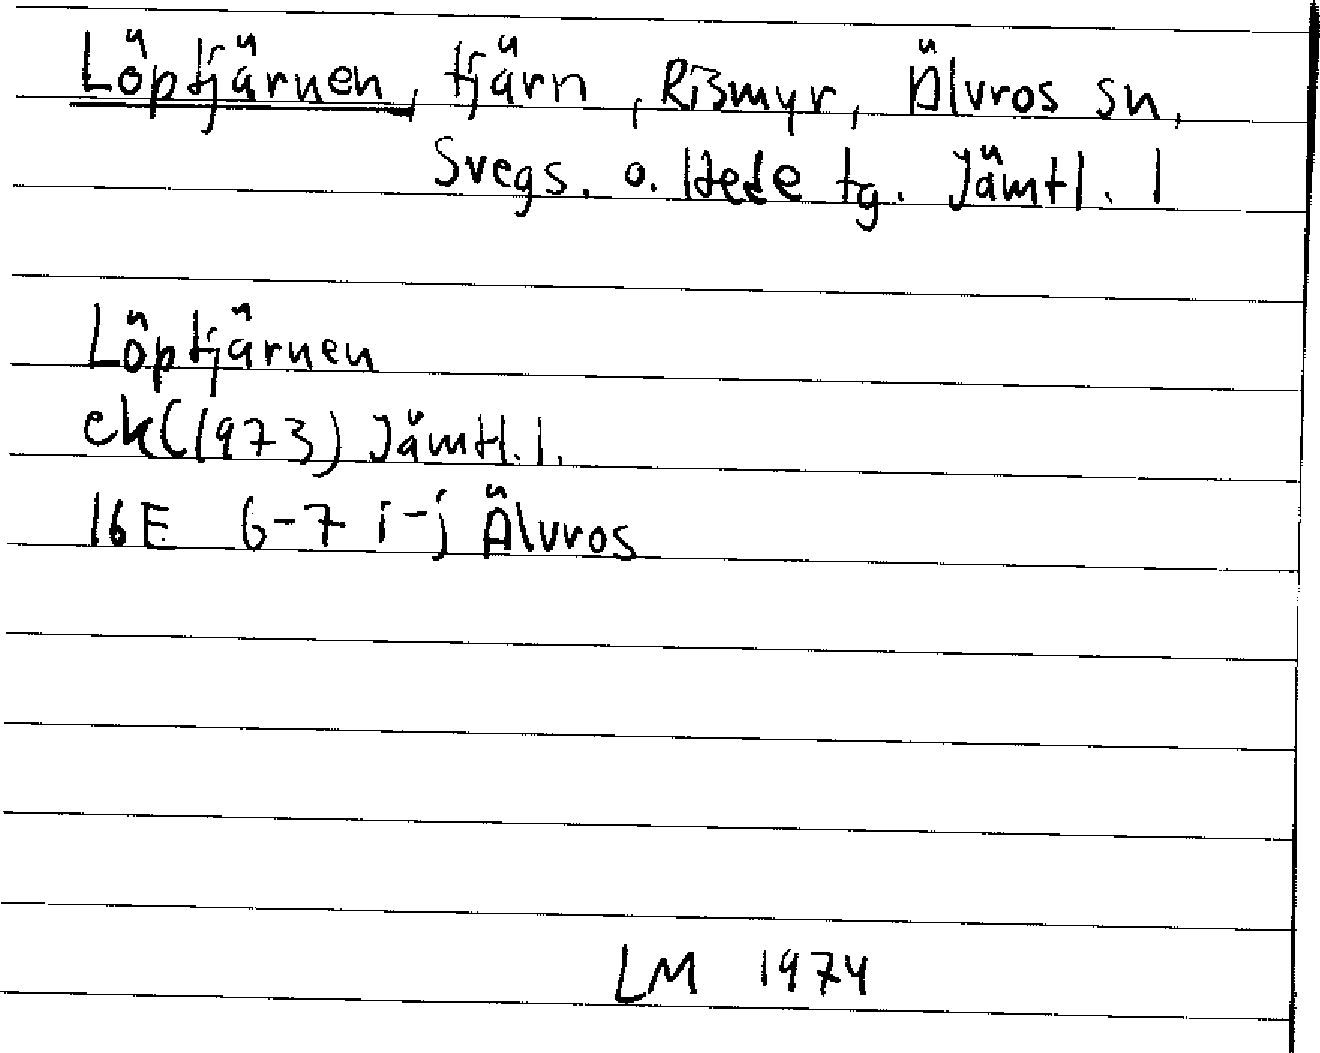 Löptjärnen, tjärn, Rismyr, Älvros sn,
Svegs. o. Hede tg. Jämtl. l
Löptjärnen
ek (1973) Jämtl. l.
16E 6-7 i-j Älvros
LM 1974